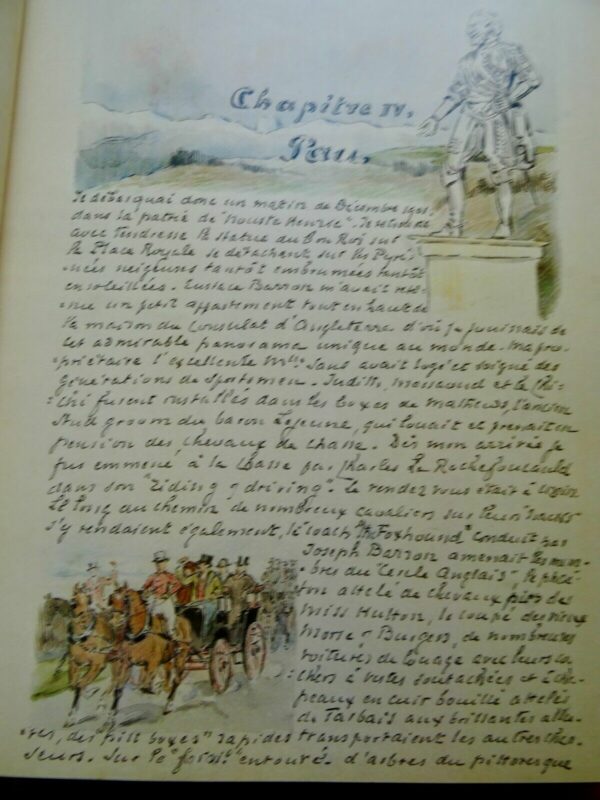 Chapitre IV.
Pau.
Je débarquai donc un matin de Décembre
dans la patrie de "Nouste Henric". Je
avec tendresse la statue du Bon Roi sur
la Place Royale se détachant sur les Pyré-
-nées neigeuses tantôt embrumées tantôt
ensoleillées. Eustace Barron m'avait rete-
-nue un petit appartement tout en haut de
la maison du Consulat d'Angleterre d'où je jouissais de
cet admirable panorama unique au monde. Ma pro-
-priétaire l'excellente Mlle Sans avait logé et soigné des
générations de Sportsmen. Judith, Messaoud et le Chi-
-Chi furent installés dans les boxes de Mathews, l'ancien
stud groom du baron Lejeune, qui louait et prenait en
pension des chevaux de chasse. Dès mon arrivée je
fus emmené à la chasse par Charles La Rochefoucauld
dans son "riding & driving". Le rendez vous était à
Le long du chemin de nombreux cavaliers sur leurs hacks
s'y rendaient également, le coach "the Foxhound" conduit par
Joseph Barron amenait les mem-
-bres du "Cercle Anglais", le phaé-
-ton attelé de chevaux pies des
Miss Hutton, le coupé des vieux
Morse & Burgers, de nombreuses
voitures de louage avec leurs co-
-chers à vestes soutachées et à cha-
-peaux en cuir bouilli attelés
de Tarbais aux brillantes allu-
-res, des "pill boxes" rapides transportaient les autres chas-
-seurs. Sur le entouré d'arbres du pittoresque